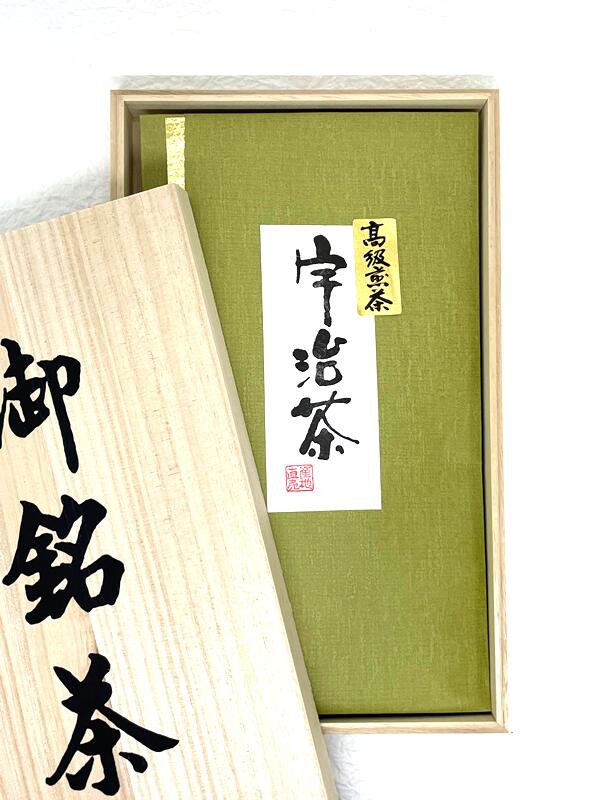 高級煎茶
宇治茶
産地直売
御銘茶